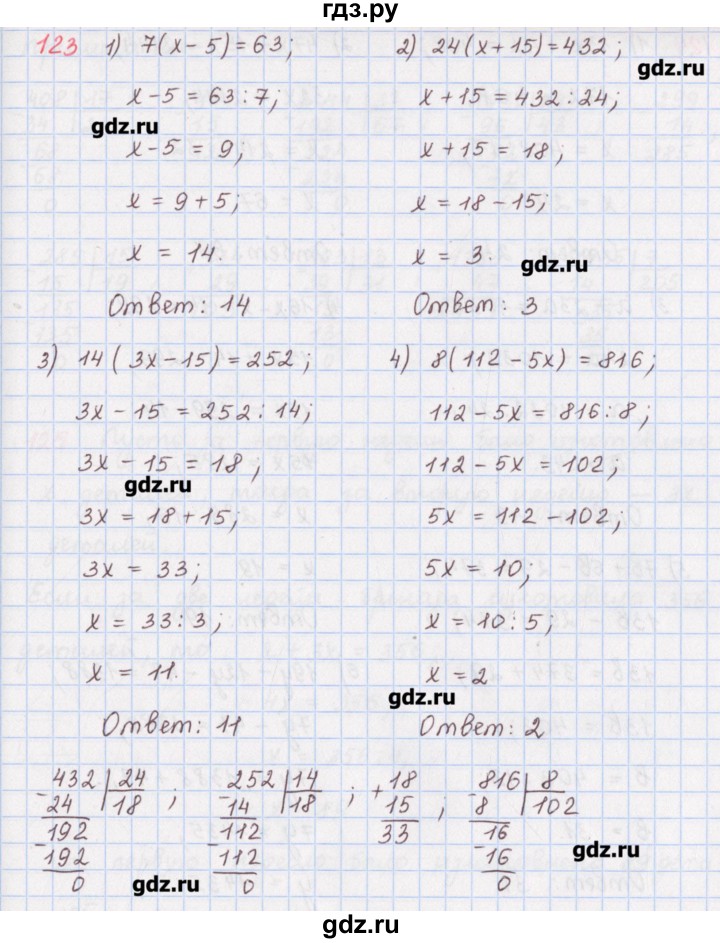 гдз.ру
123 1) 7(x-5)=63;
x-5=63:7;
x-5=9;
x=9+5;
x=14.
Ответ: 14
2) 24(x+15)=432;
x+15=432:24;
x+15=18;
x=18-15;
x=3.
Ответ: 3
3) 14(3x-15)=252;
3x-15=252:14;
3x-15=18;
3x=18+15;
3x=33;
x=33:3;
x=11.
Ответ: 11
4) 8(112-5x)=816;
112-5x=816:8;
112-5x=102;
5x=112-102;
5x=10;
x=10:5;
x=2
Ответ: 2
-432 | 24
24 | 18
-192
192
0
;
-252 | 14
14 | 18
-112
112
0
;
+18
15
33
;
-816 | 8
8 | 102
-16
16
0
gdz.ru
gdz.ru
gdz.ru
gdz.ru
gdz.ru
gdz.ru
gdz.ru
gdz.ru